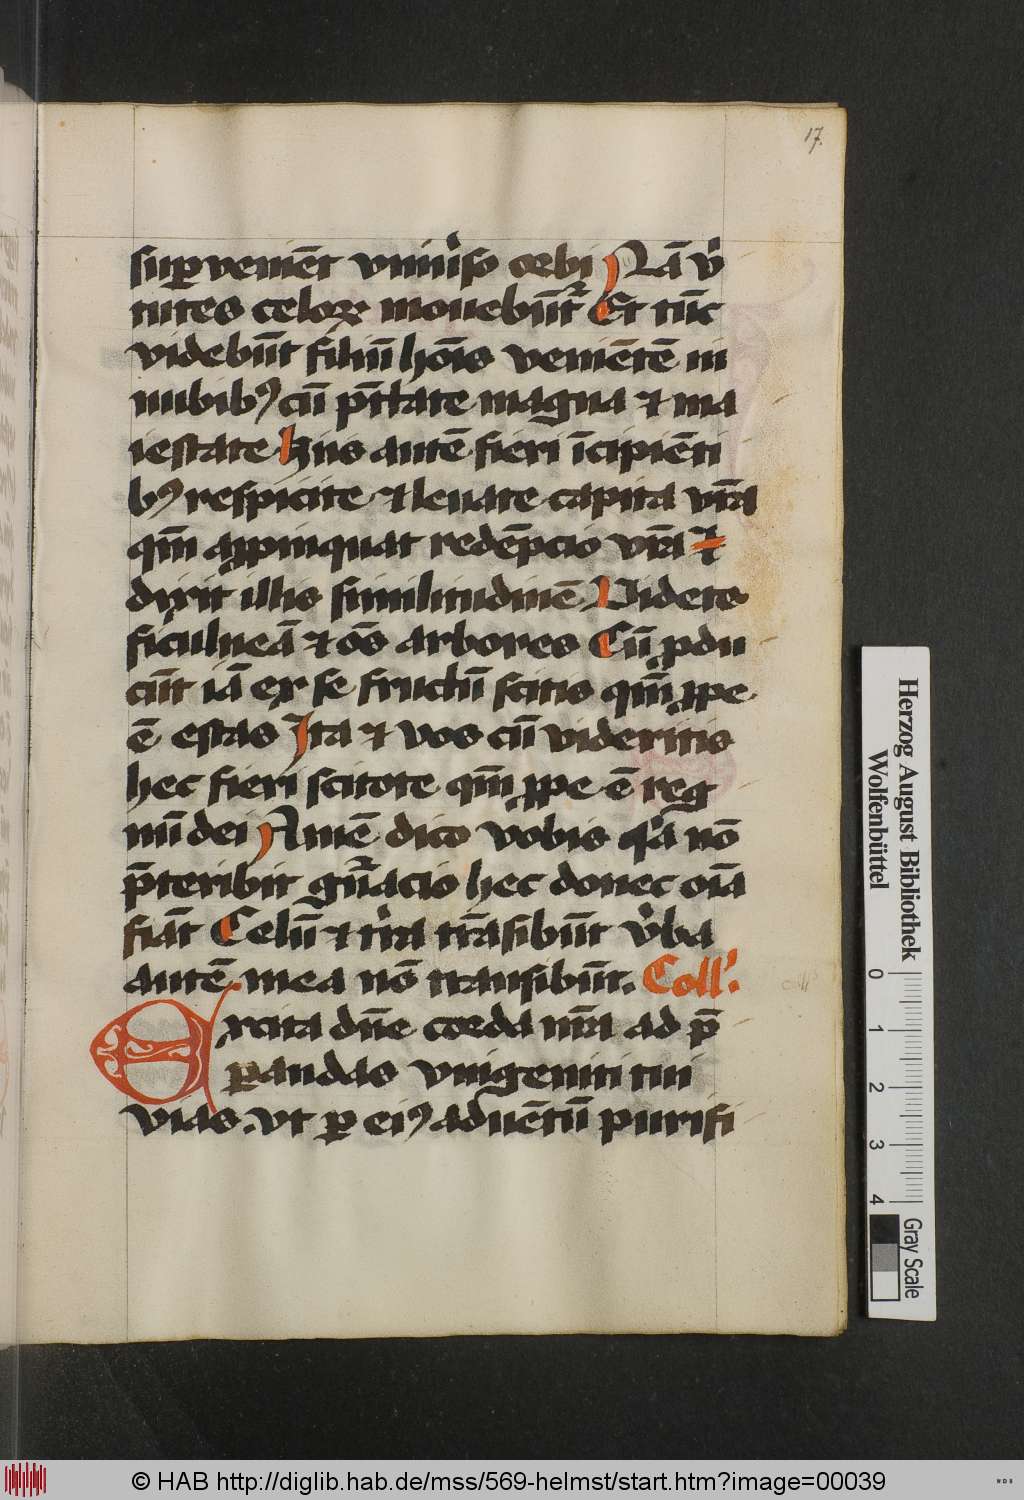 17.
suꝑueniēt vniu̾so orbi Nā v̾
tutes celoꝝ mouebūt᷑ Et tūc
videbūt filiū hoīs venientē in
nubibꝰ cū ptāte magna ⁊ ma
iestate Hiis autē fieri īcipiēti
bꝰ respicite ⁊ leuate capita vr̄a
qm̄ appinquat redēpcio vr̄a ⁊
dixit illis similitudinē Videte
ficulneā ⁊ oēs arbores Cū ꝓdu
cūt iā ex se fructū scitis qm̄ ꝓpe
ē estas Ita ⁊ vos cū videritis
hec fieri scitote qm̄ ꝓpe ē reg
nū dei Amē dico vobis qa nō
p̄teribit gn̄acio hec donec oīa
fiāt Celū ⁊ t̾ra trāsibūt v̾ba
autē mea nō transibūt. Coll̾.
Excita dn̄e corda nr̄a ad p̄
ꝑandas vnigeniti tui
vias. vt ꝑ eiꝰ aduētū purifi
Herzog August Bibliothek
Wolfenbüttel
0 1 2 3 4
Gray Scale
© HAB http://diglib.hab.de/mss/569-helmst/start.htm?image=00039